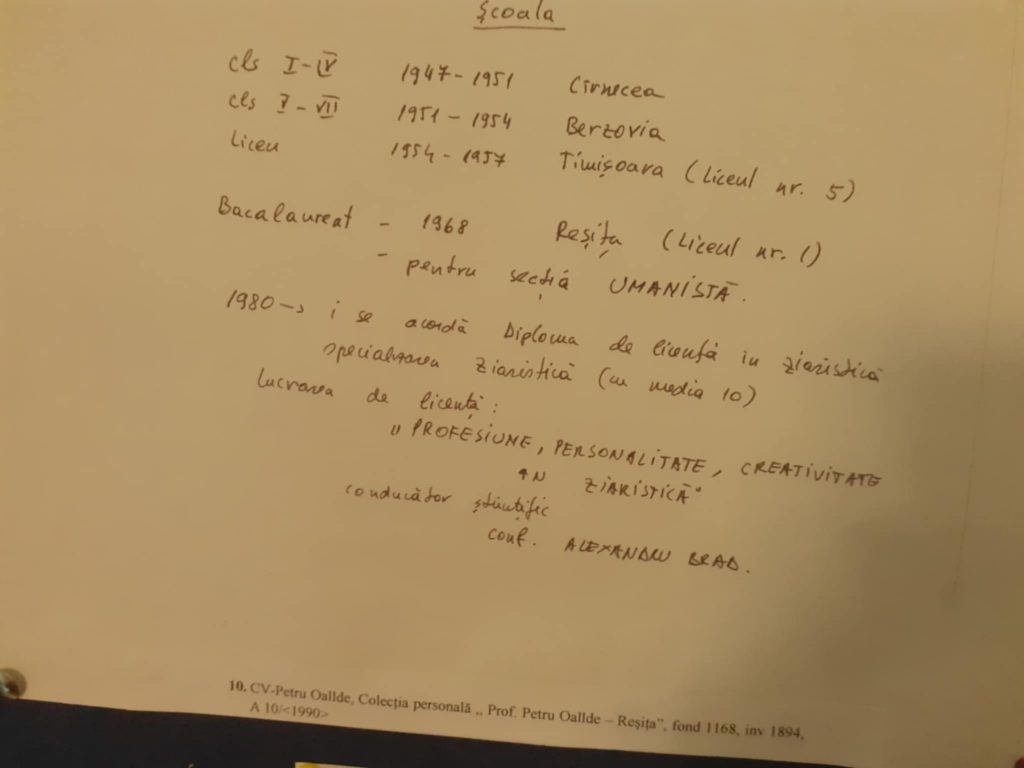 Școala
cls I-IV 1947-1951 Cîrnecea
cls V-VII 1951-1954 Berzovia
Liceu 1954-1957 Timișoara (Liceul nr. 5)
Bacalaureat - 1968 Reșița (Liceul nr. 1)
- pentru secția UMANISTĂ.
1980 → i se acordă Diploma de licență în ziaristică
specializarea ziaristică (cu media 10)
Lucrarea de licență:
„PROFESIUNE, PERSONALITATE, CREATIVITATE
ÎN ZIARISTICĂ"
conducător științific
conf. ALEXANDRU BRAD.
10. CV-Petru Oallde, Colecția personală „ Prof. Petru Oallde – Reșița”, fond 1168, inv 1894,
A 10/<1990>